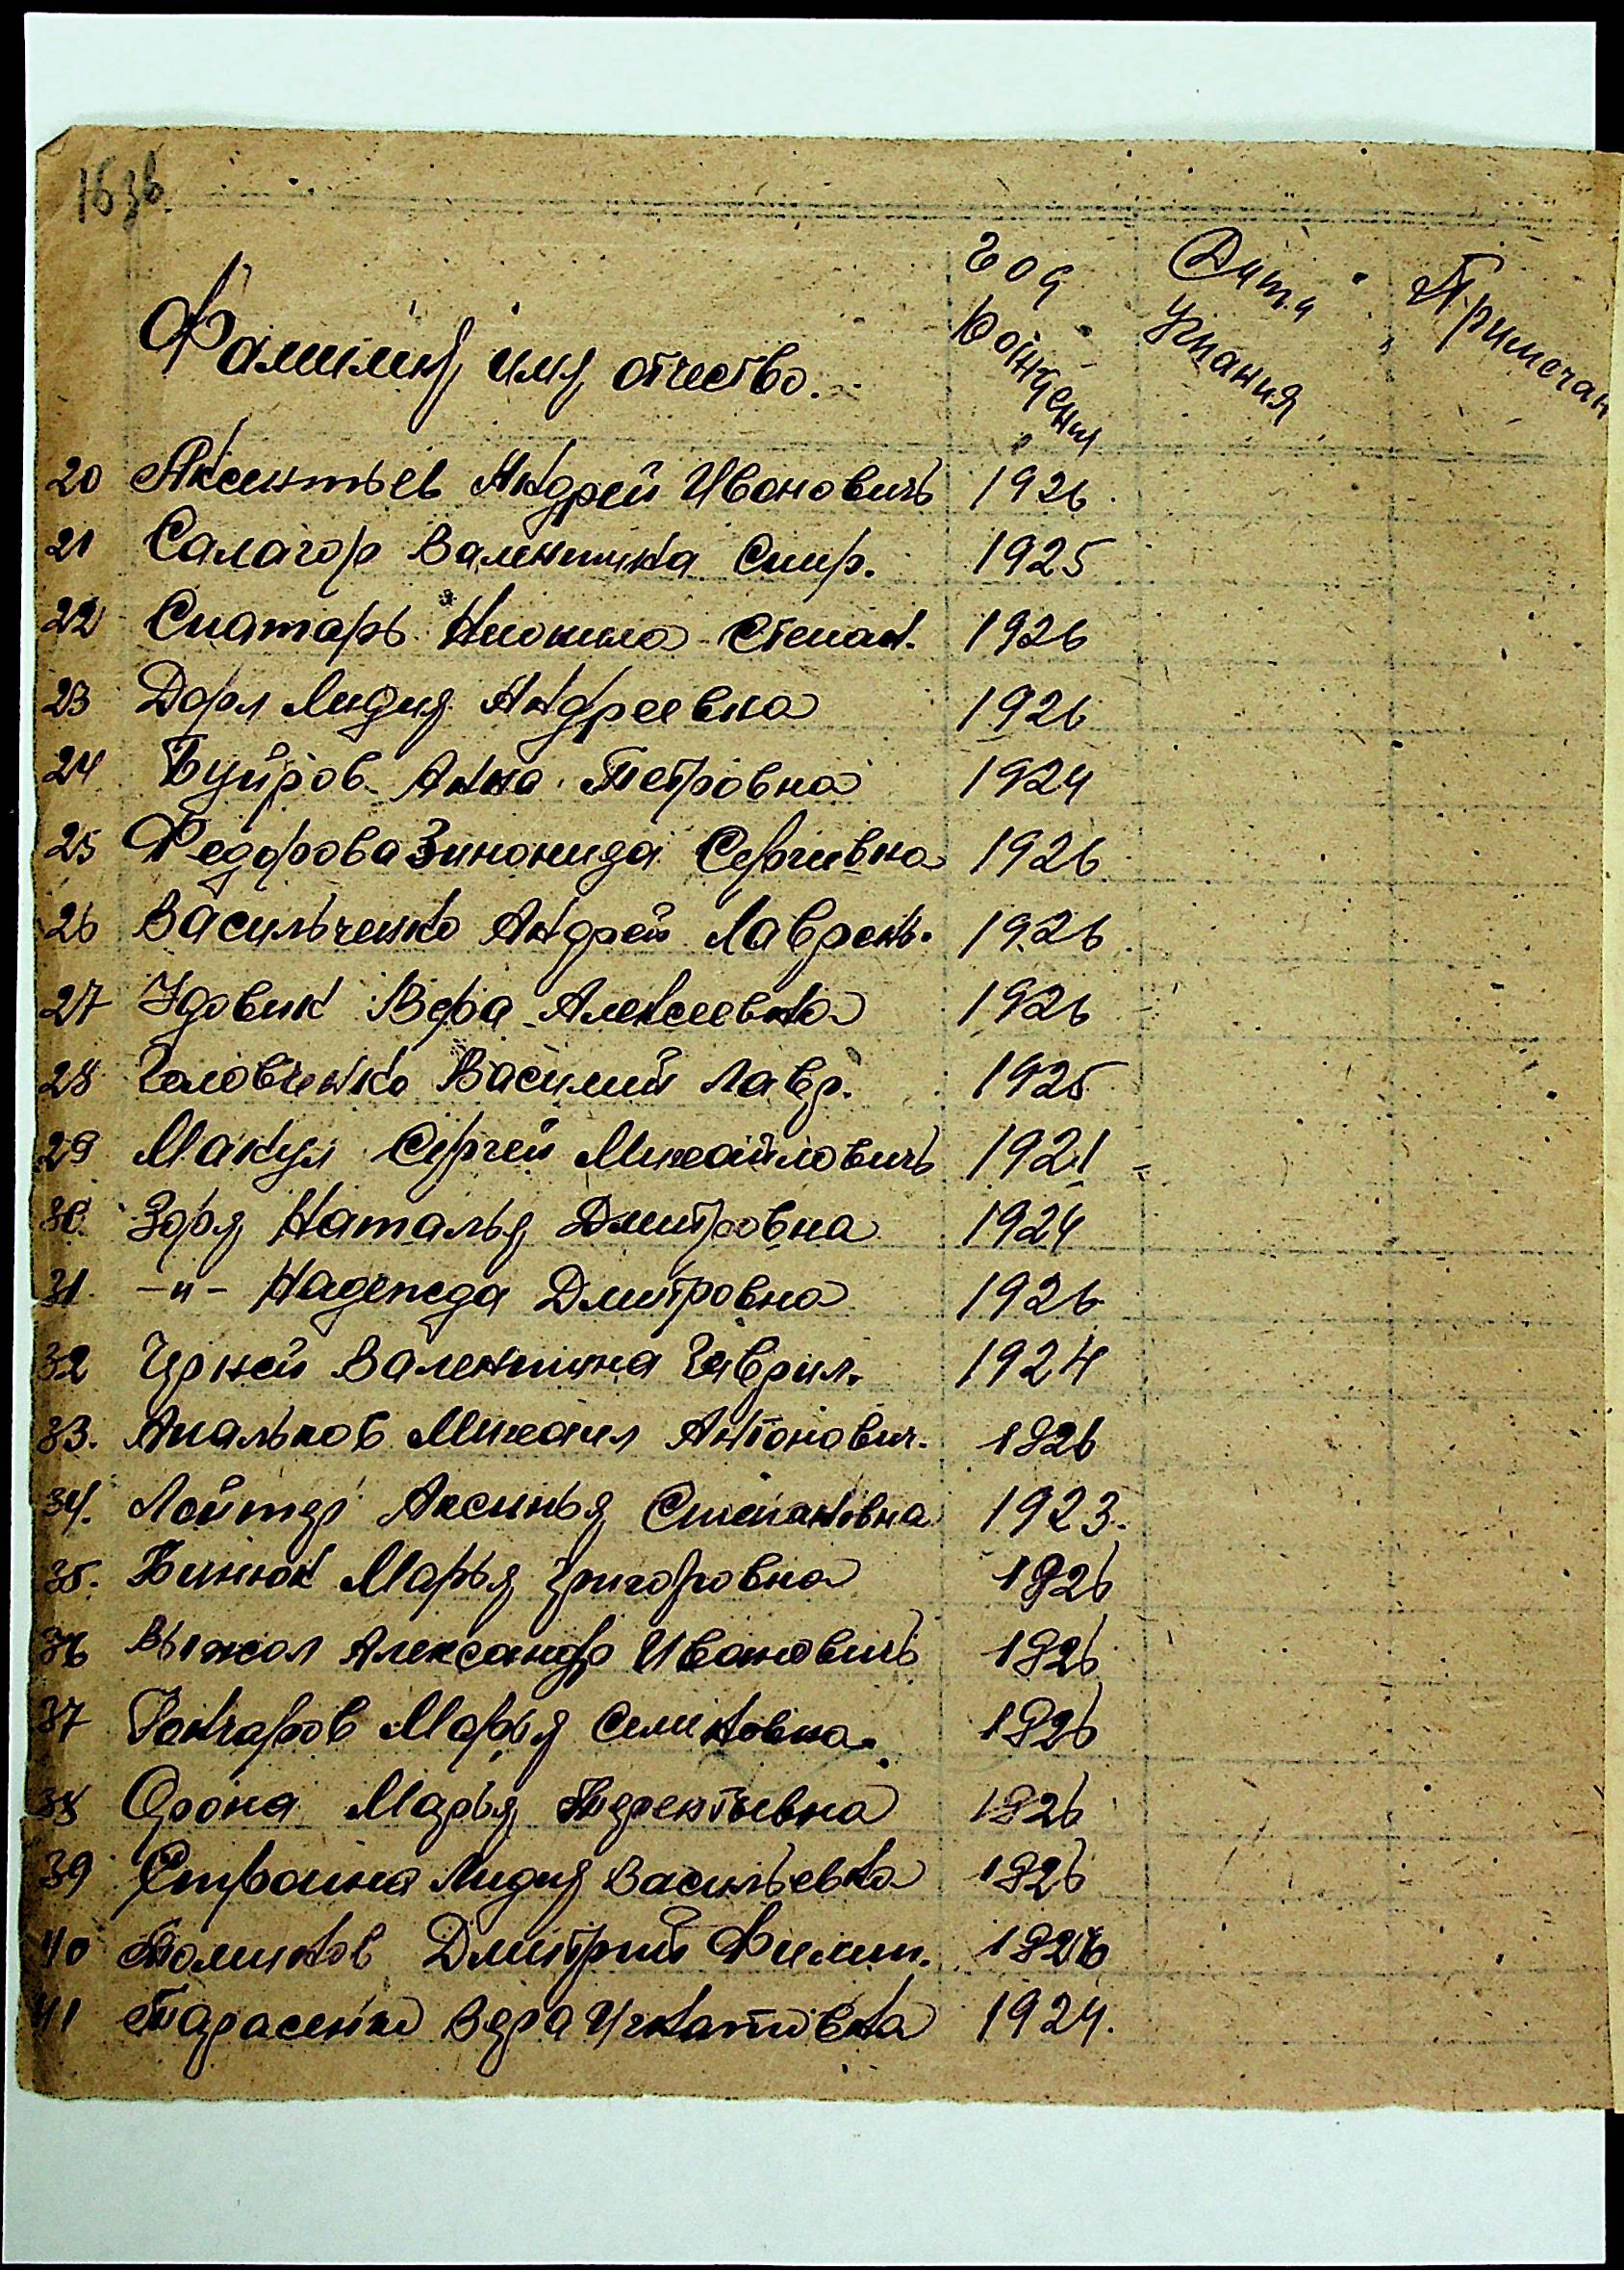 163б
Фамилия, имя отчество. Год рождения Дата угнания Примечан
20 Аксентьев Андрей Ивановичь 1926
21 Салагор Валентина Спир. 1925
22 Спатарь Степан. 1926
23 Дорл Лидия Андреевна 1926
24 Буйров Анна Петровна 1924
25 Федорова Зинонида Сергиевна 1926
26 Васильченко Андрей Лаврень. 1926
27 Удовик Вера Алексеевна 1926
28 Головченко Василий Лавр. 1925
29 Макул Сергей Михайловичь 1921
30. Зоря Наталья Дмитровна 1924
31. -"- Надежда Дмитровна 1926
32 Церней Валентина Гаврил. 1924
33. Михаил Антонович. 1926
34. Аксинья Степановна 1923.
35. Бинюк Марья Григоровна 1926
36 Выжол Александр Ивановичь 1926
37 Гончаров Марья Семеновна. 1926
38 Марья Терентьевна 1926
39 Лидия Васильевна 1926
40 Дмитрий Филип. 1926
41 Тарасенко Вера Игнатовна 1924.